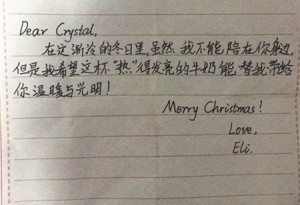 Dear Crystal,
在这渐冷的冬日里,虽然我不能陪在你身边,
但是我希望这杯“热”得发亮的牛奶能替我带给
你温暖与光明!
Merry Christmas!
Love,
Eli.